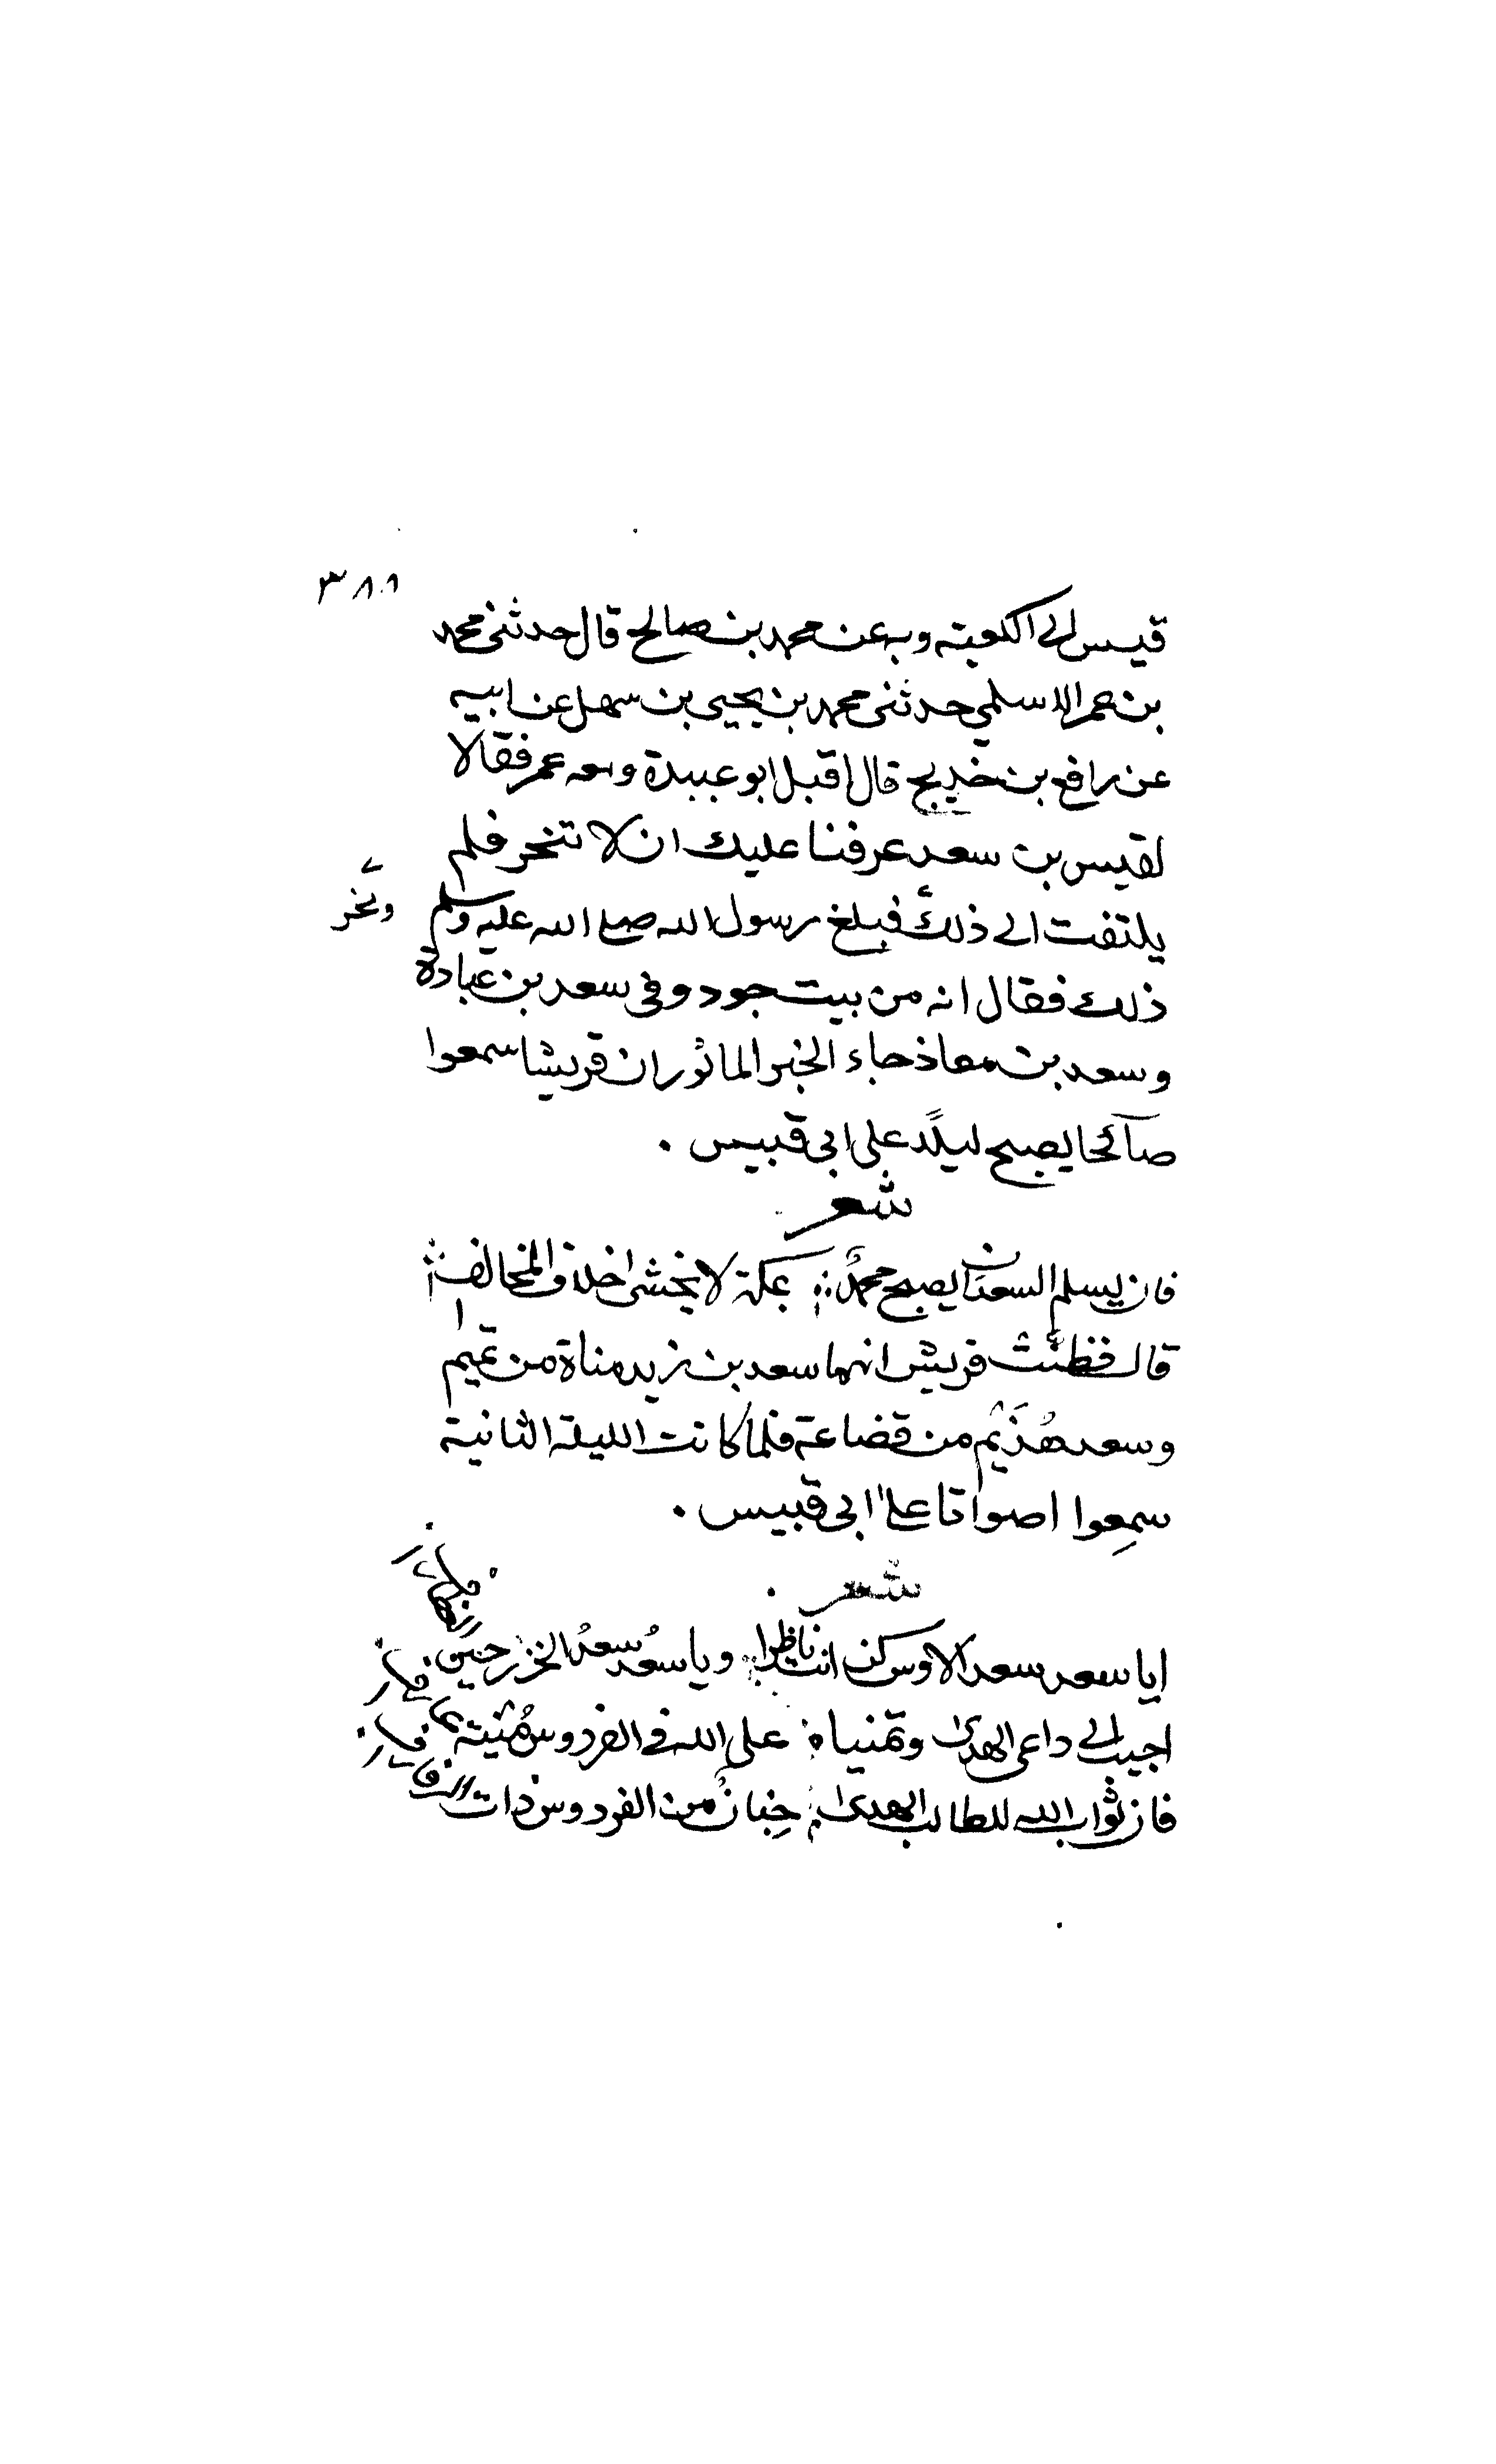 ٣٨٨
قيس الى الكعبة وبه عن محمد بن صالح قال حدثني محمد
بن عمر الاسلمي حدثني محمد بن يحيى بن سهل عن ابيه
عن رافع بن خديج قال اقبل ابو عبيدة ومعه عمر فقالا
لقيس بن سعد عرفنا عليك ان لا تنحر فلم
يلتفت الى ذلك فبلغ رسول الله صلى الله عليه وسلم
ونحر
ذلك فقال انه من بيت جود وفي سعد بن عبادة
وسعد بن معاذ جاء الخبر الماثور ان قريشا سمعوا
صآئحا يصيح ليلًا على ابي قبيس .
شعر
فان يسلم السعدان يصبح محمدٌ بمكة لا يخشى خلاف المخالف
قال فظنت قريش انهما سعد بن زيد مناة من تميم
وسعد هُذَيم من قضاعة فلما كانت الليلة الثانية
سمِعوا اصواتا على ابي قبيس .
شعر
ايا سعد سعد الاوس كن انت ناظرا وياسعدُ سعدُ الخزرجين
اجيبا الى داعي الهدى وتمنيا على الله في الفردوس مُنية
فان ثواب الله للطالب الهدى جِنانٌ من الفردوس ذات